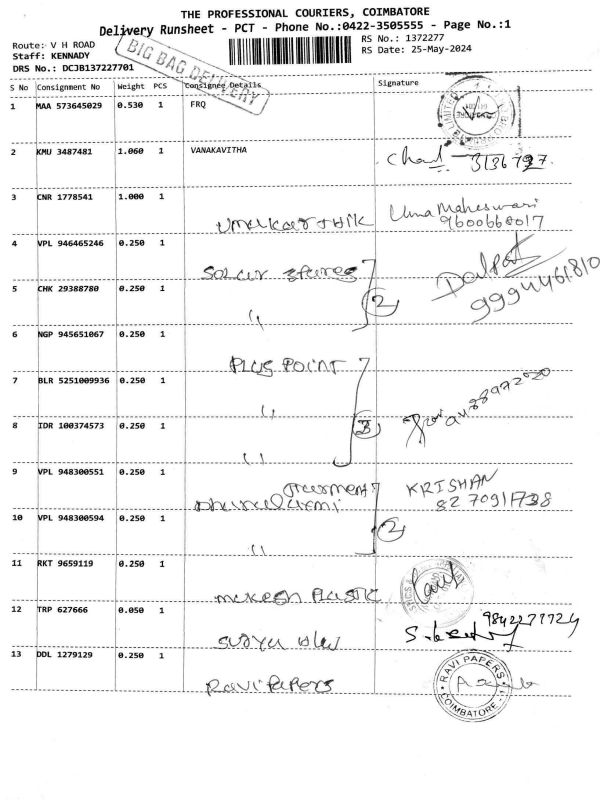 THE PROFESSIONAL COURIERS, COIMBATORE
Delivery Runsheet - PCT - Phone No.:0422-3505555 - Page No.:1
Route: V H ROAD
RS No.: 1372277
Staff: KENNADY
RS Date: 25-May-2024
DRS No.: DCJB137227701
BIG BAG DELIVERY
S No Consignment No Weight PCS Consignee Details Signature
1 MAA 573645029 0.530 1 FRQ
2 KMU 3487481 1.060 1 VANAKAVITHA
3 CNR 1778541 1.000 1 Uma Maheswari
9600668017
4 VPL 946465246 0.250 1
9994461810
5 CHK 29388780 0.250 1 " 2
6 NGP 945651067 0.250 1 PLUS POINT
7 BLR 5251009936 0.250 1 "
8 IDR 100374573 0.250 1 " 3
9 VPL 948300551 0.250 1 KRISHAN
10 VPL 948300594 0.250 1 " 2
11 RKT 9659119 0.250 1 mukesh Plastic
12 TRP 627666 0.050 1 9842277724
13 DDL 1279129 0.250 1 Ravi Papers
RAVI PAPERS
COIMBATORE